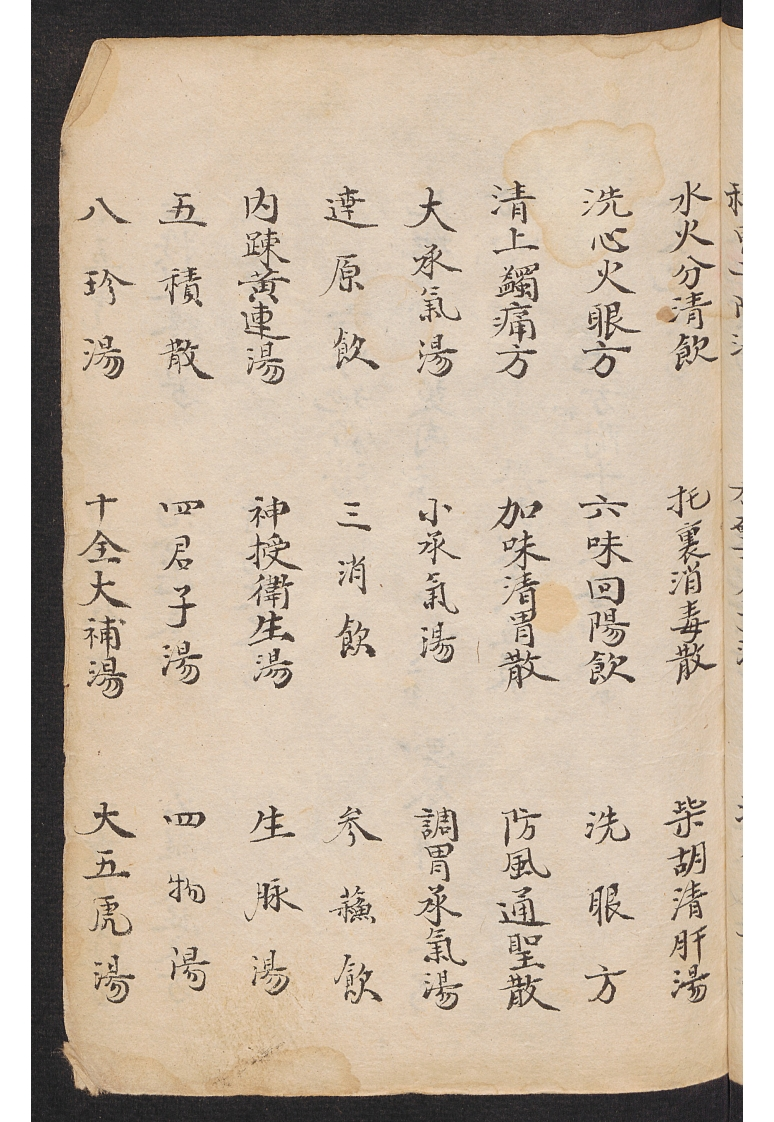 水火分清飲 托裏消毒散 柴胡清肝湯
洗心火眼方 六味回陽飲 洗眼方
清上蠲痛方 加味清胃散 防風通聖散
大承氣湯 小承氣湯 調胃承氣湯
達原飲 三消飲 參蘓飲
内踈黄連湯 神授衛生湯 生脉湯
五積散 四君子湯 四物湯
八珍湯 十全大補湯 大五虎湯